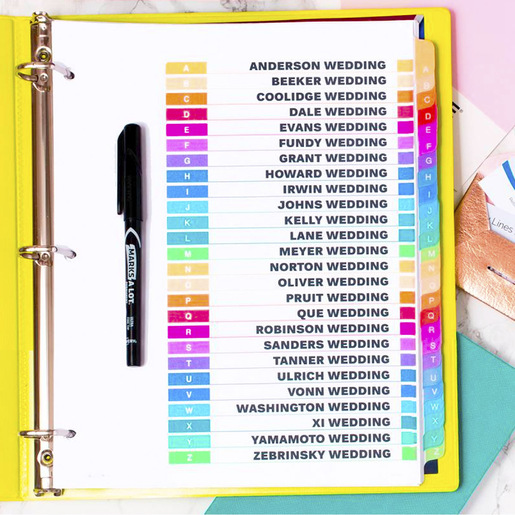 A ANDERSON WEDDING A
B BEEKER WEDDING B
C COOLIDGE WEDDING C
D DALE WEDDING D
E EVANS WEDDING E
F FUNDY WEDDING F
G GRANT WEDDING G
H HOWARD WEDDING H
I IRWIN WEDDING I
J JOHNS WEDDING J
K KELLY WEDDING K
L LANE WEDDING L
M MEYER WEDDING M
N NORTON WEDDING N
O OLIVER WEDDING O
P PRUIT WEDDING P
Q QUE WEDDING Q
R ROBINSON WEDDING R
S SANDERS WEDDING S
T TANNER WEDDING T
U ULRICH WEDDING U
V VONN WEDDING V
W WASHINGTON WEDDING W
X XI WEDDING X
Y YAMAMOTO WEDDING Y
Z ZEBRINSKY WEDDING Z
MARKS A LOT
Lines